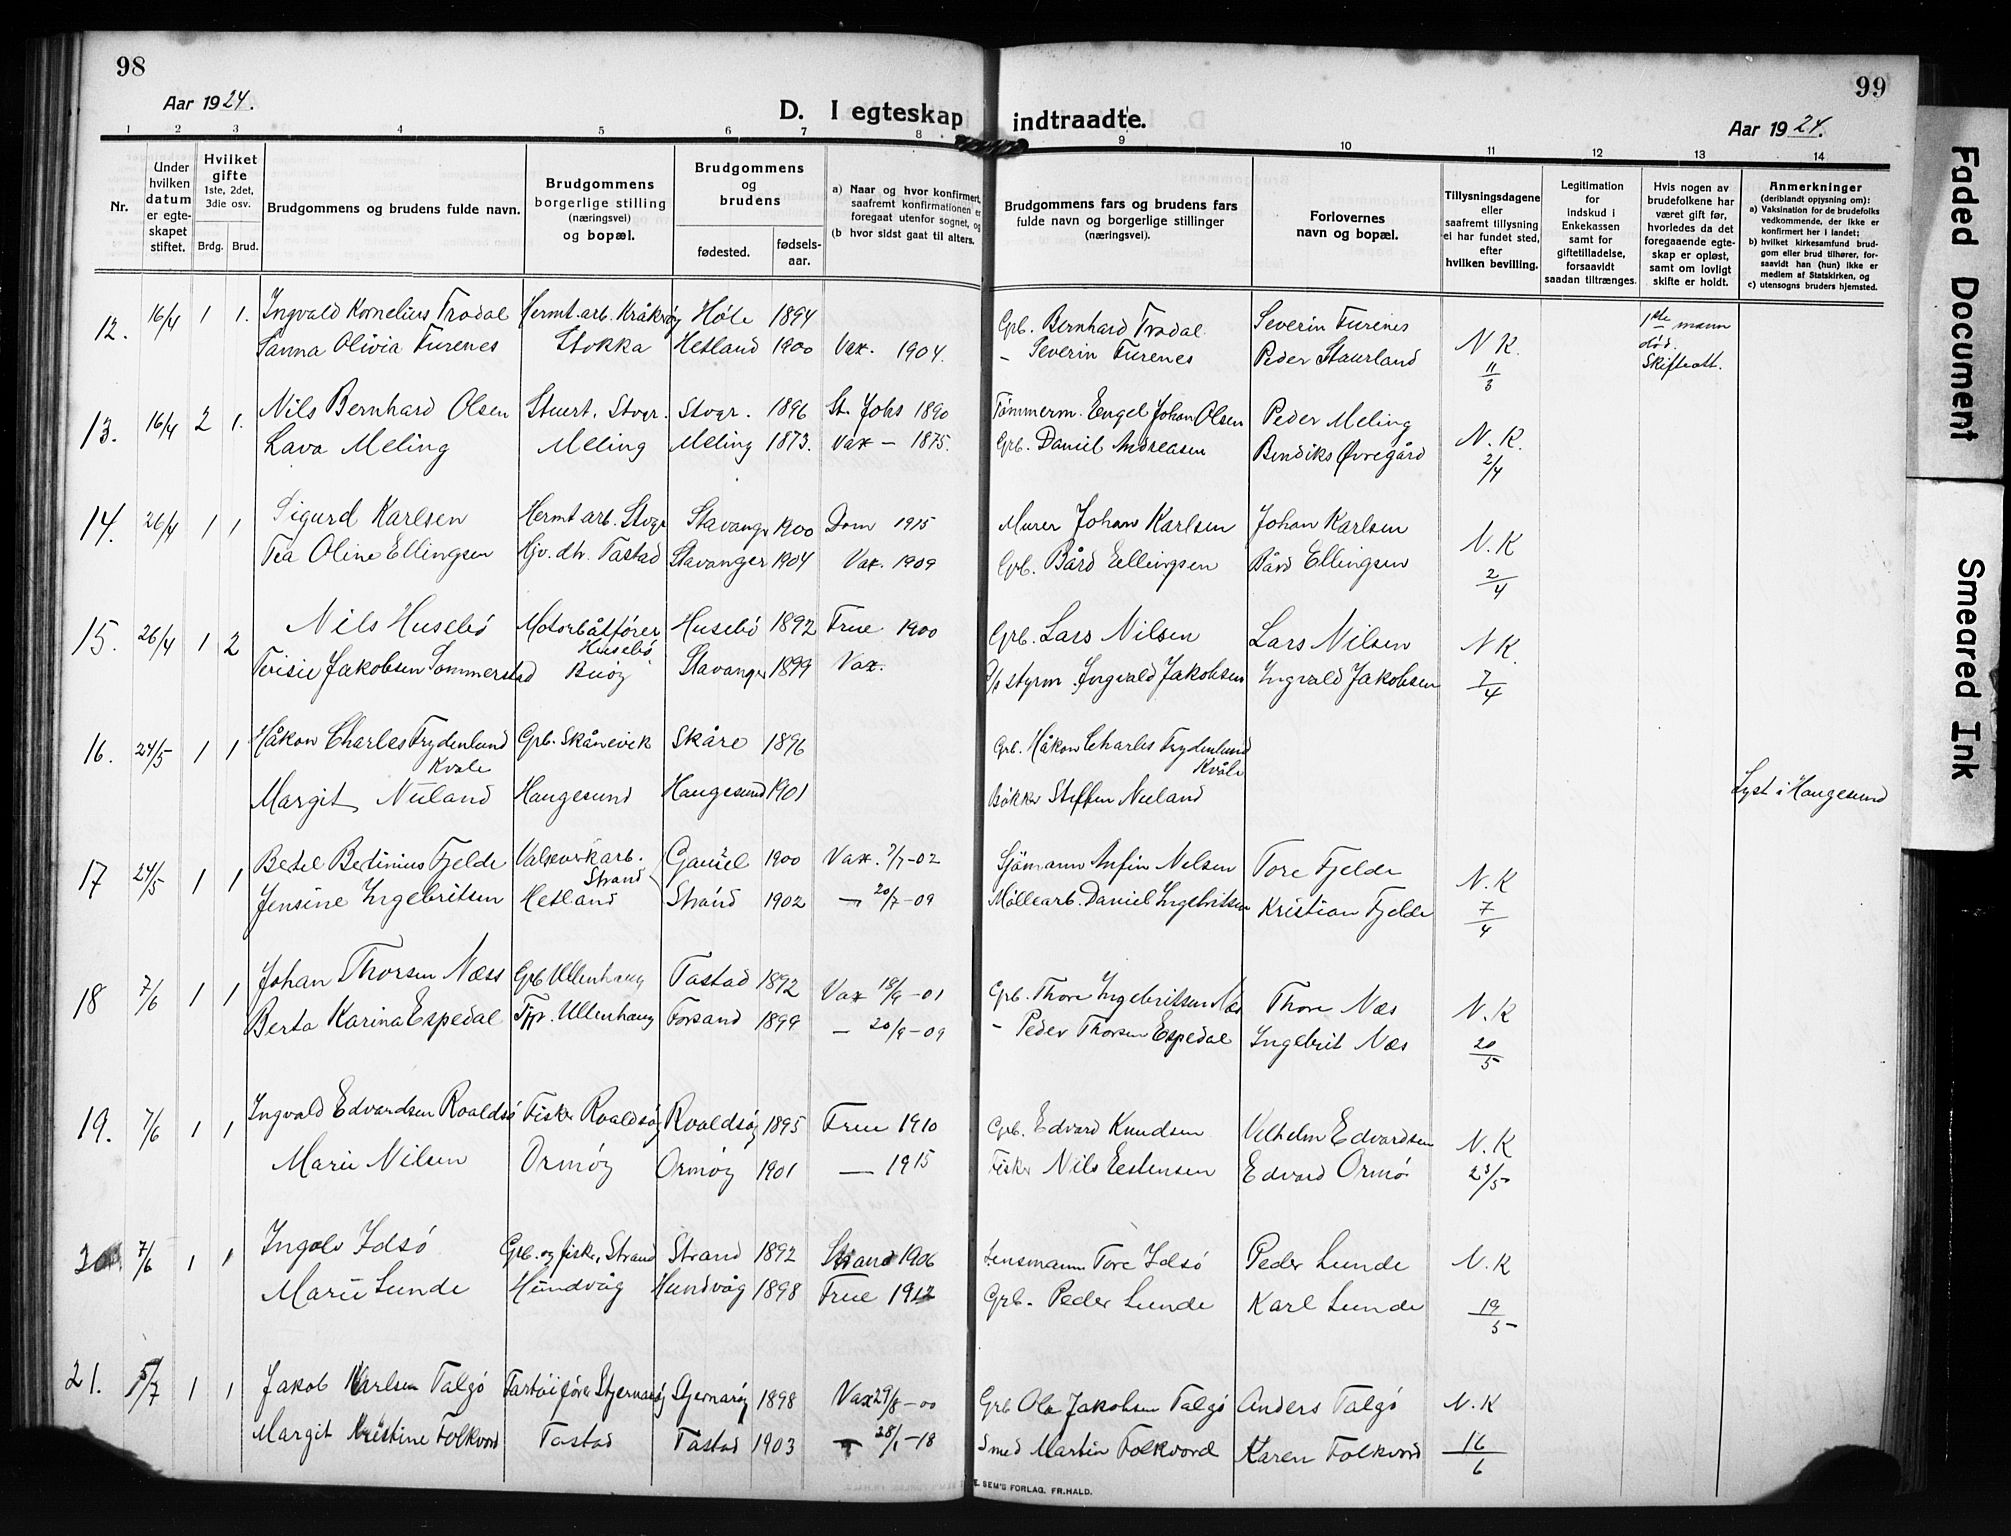 98
99
Aar 1924.
D. I egteskap indtraadte.
Aar 1924.
1 2 3 4 5 6 7 8 9 10 11 12 13 14
Nr.
Under hvilken datum er egte-skapet stiftet.
Hvilket gifte 1ste, 2det, 3die osv.
Brdg. Brud.
Brudgommens og brudens fulde navn.
Brudgommens borgerlige stilling (næringsvei) og bopæl.
Brudgommens og brudens
fødested.
fødsels-aar.
a) Naar og hvor konfirmert, saafremt konfirmationen er foregaat utenfor sognet, og
(b hvor sidst gaat til alters.
Brudgommens fars og brudens fars fulde navn og borgerlige stillinger (næringsvei).
Forlovernes navn og bopæl.
Tillysningsdagene eller saafremt tillysning ei har fundet sted, efter hvilken bevilling.
Legitimation for indskud i Enkekassen samt for giftetilladelse, forsaavidt saadan tiltrænges.
Hvis nogen av brudefolkene har været gift før, hvorledes da det foregaaende egte-skap er opløst, samt om lovligt skifte er holdt.
Anmerkninger (deriblandt opysning om):
a) Vaksination for de brudefolks vedkommende, der ikke er konfirmert her i landet;
b) hvilket kirkesamfund brud-gom eller brud tilhører, for-saavidt han (hun) ikke er medlem af Statskirken, og
c) utensogns bruders hjemsted.
12. 16/4 1 1. Ingvald Kornelius Tradal Hermt.arb. Kråkøy Høle 1894 Grb. Bernhard Tradal Severin Furenes N K. 11/3 1ste mann død. Skifteatt.
Sanna Olivia Furenes Stokka Hetland 1900 Vax. 1904. – Severin Furenes Peder Staurland
13. 16/4 2 1. Nils Bernhard Olsen Stuert. Stvgr. Stvgr. 1896 St. Johs 1890 Tømmerm. Engel Johan Olsen Peder Meling N. K. 2/4
Lava Meling Meling Meling 1873. Vax – 1875. Grb. Daniel Andreasen Bendiks Øvregård
14. 26/4 1 1 Sigurd Karlsen Hermt arb. Stvgr Stavangr 1900 Dom 1915 Murer Johan Karlsen Johan Karlsen N. K 2/4
Tea Oline Ellingsen Hjv. dtr. Tastad Stavanger 1904 Vax. 1909 Grb. Bård Ellingsen Bård Ellingsen
15. 26/4 1 2 Nils Husebö Motorbåtfører Husebö Husebö 1892 Frue 1900 Grb. Lars Nilsen Lars Nilsen N K. 7/4
Terisie Jakobsen Sommerstad Buöy Stavanger 1899 Vax. D/s styrm. Ingvald Jakobsen Ingvald Jakobsen
16. 24/5 1 1 Håkon Charles Frydenlund Kvale Grb. Skånevik Skåre 1896 Grb. Håkon Charles Frydenlund Kvåle
Margit Nuland Haugesund Haugesund 1901 Bøkker Steffen Nuland Lyst i Haugesund
17 24/5 1 1 Betel Bertinius Fjelde Valseverkarb. Strand Gausel 1900 Vax. 7/7-02 Sjömann Anfin Nilsen Tore Fjelde N. K 7/4
Jensine Ingebritsen Hetland Strand 1902 – 20/7-09 Møllearb. Daniel Ingebritsen Kristian Fjelde
18 7/6 1 1 Johan Thorsen Næss Grb Ullenhaug Tastad 1892 Vax 18/9-01 Grb. Thore Ingebritsen Næs Thore Næs N. K 20/5
Berta Karina Espedal Tjp. Ullenhaug Forsand 1899 – 20/9-09 – Peder Thorsen Espedal Ingebrit Næs
19. 7/6 1 1 Ingvald Edvardsen Roaldsö Fisker Roaldsöy Roaldsöy 1895 Frue 1910 Grb. Edvard Knudsen Vilhelm Edvardsen N. K 23/5
Marie Nilsen Ormöy Ormöy 1901 – 1915 Fisker Nils Estensen Edvard Ormö
20. 7/6 1 1 Ingolv Idsö Grb. og fisker, Strand Strand 1892 Strand 1906 Lensmann Tore Idsö Peder Lunde N. K 19/5
Marie Lunde Hundvåg Hundvåg 1898 Frue 1912 Grb. Peder Lunde Karl Lunde
21. 5/7 1 1 Jakob Karlsen Talgö Fartöifører Stjernaröy Stjernaröy 1898 Vax 29/8-00 Grb Ola Jakobsen Talgö Anders Talgö N. K 16/6
Margit Kristine Folkvord Tastad Tastad 1903 – 28/1-18 Smed Martin Folkvord Karen Folkvord
E. SEM'S FORLAG. FR.HALD.
Faded Document
Smeared Ink